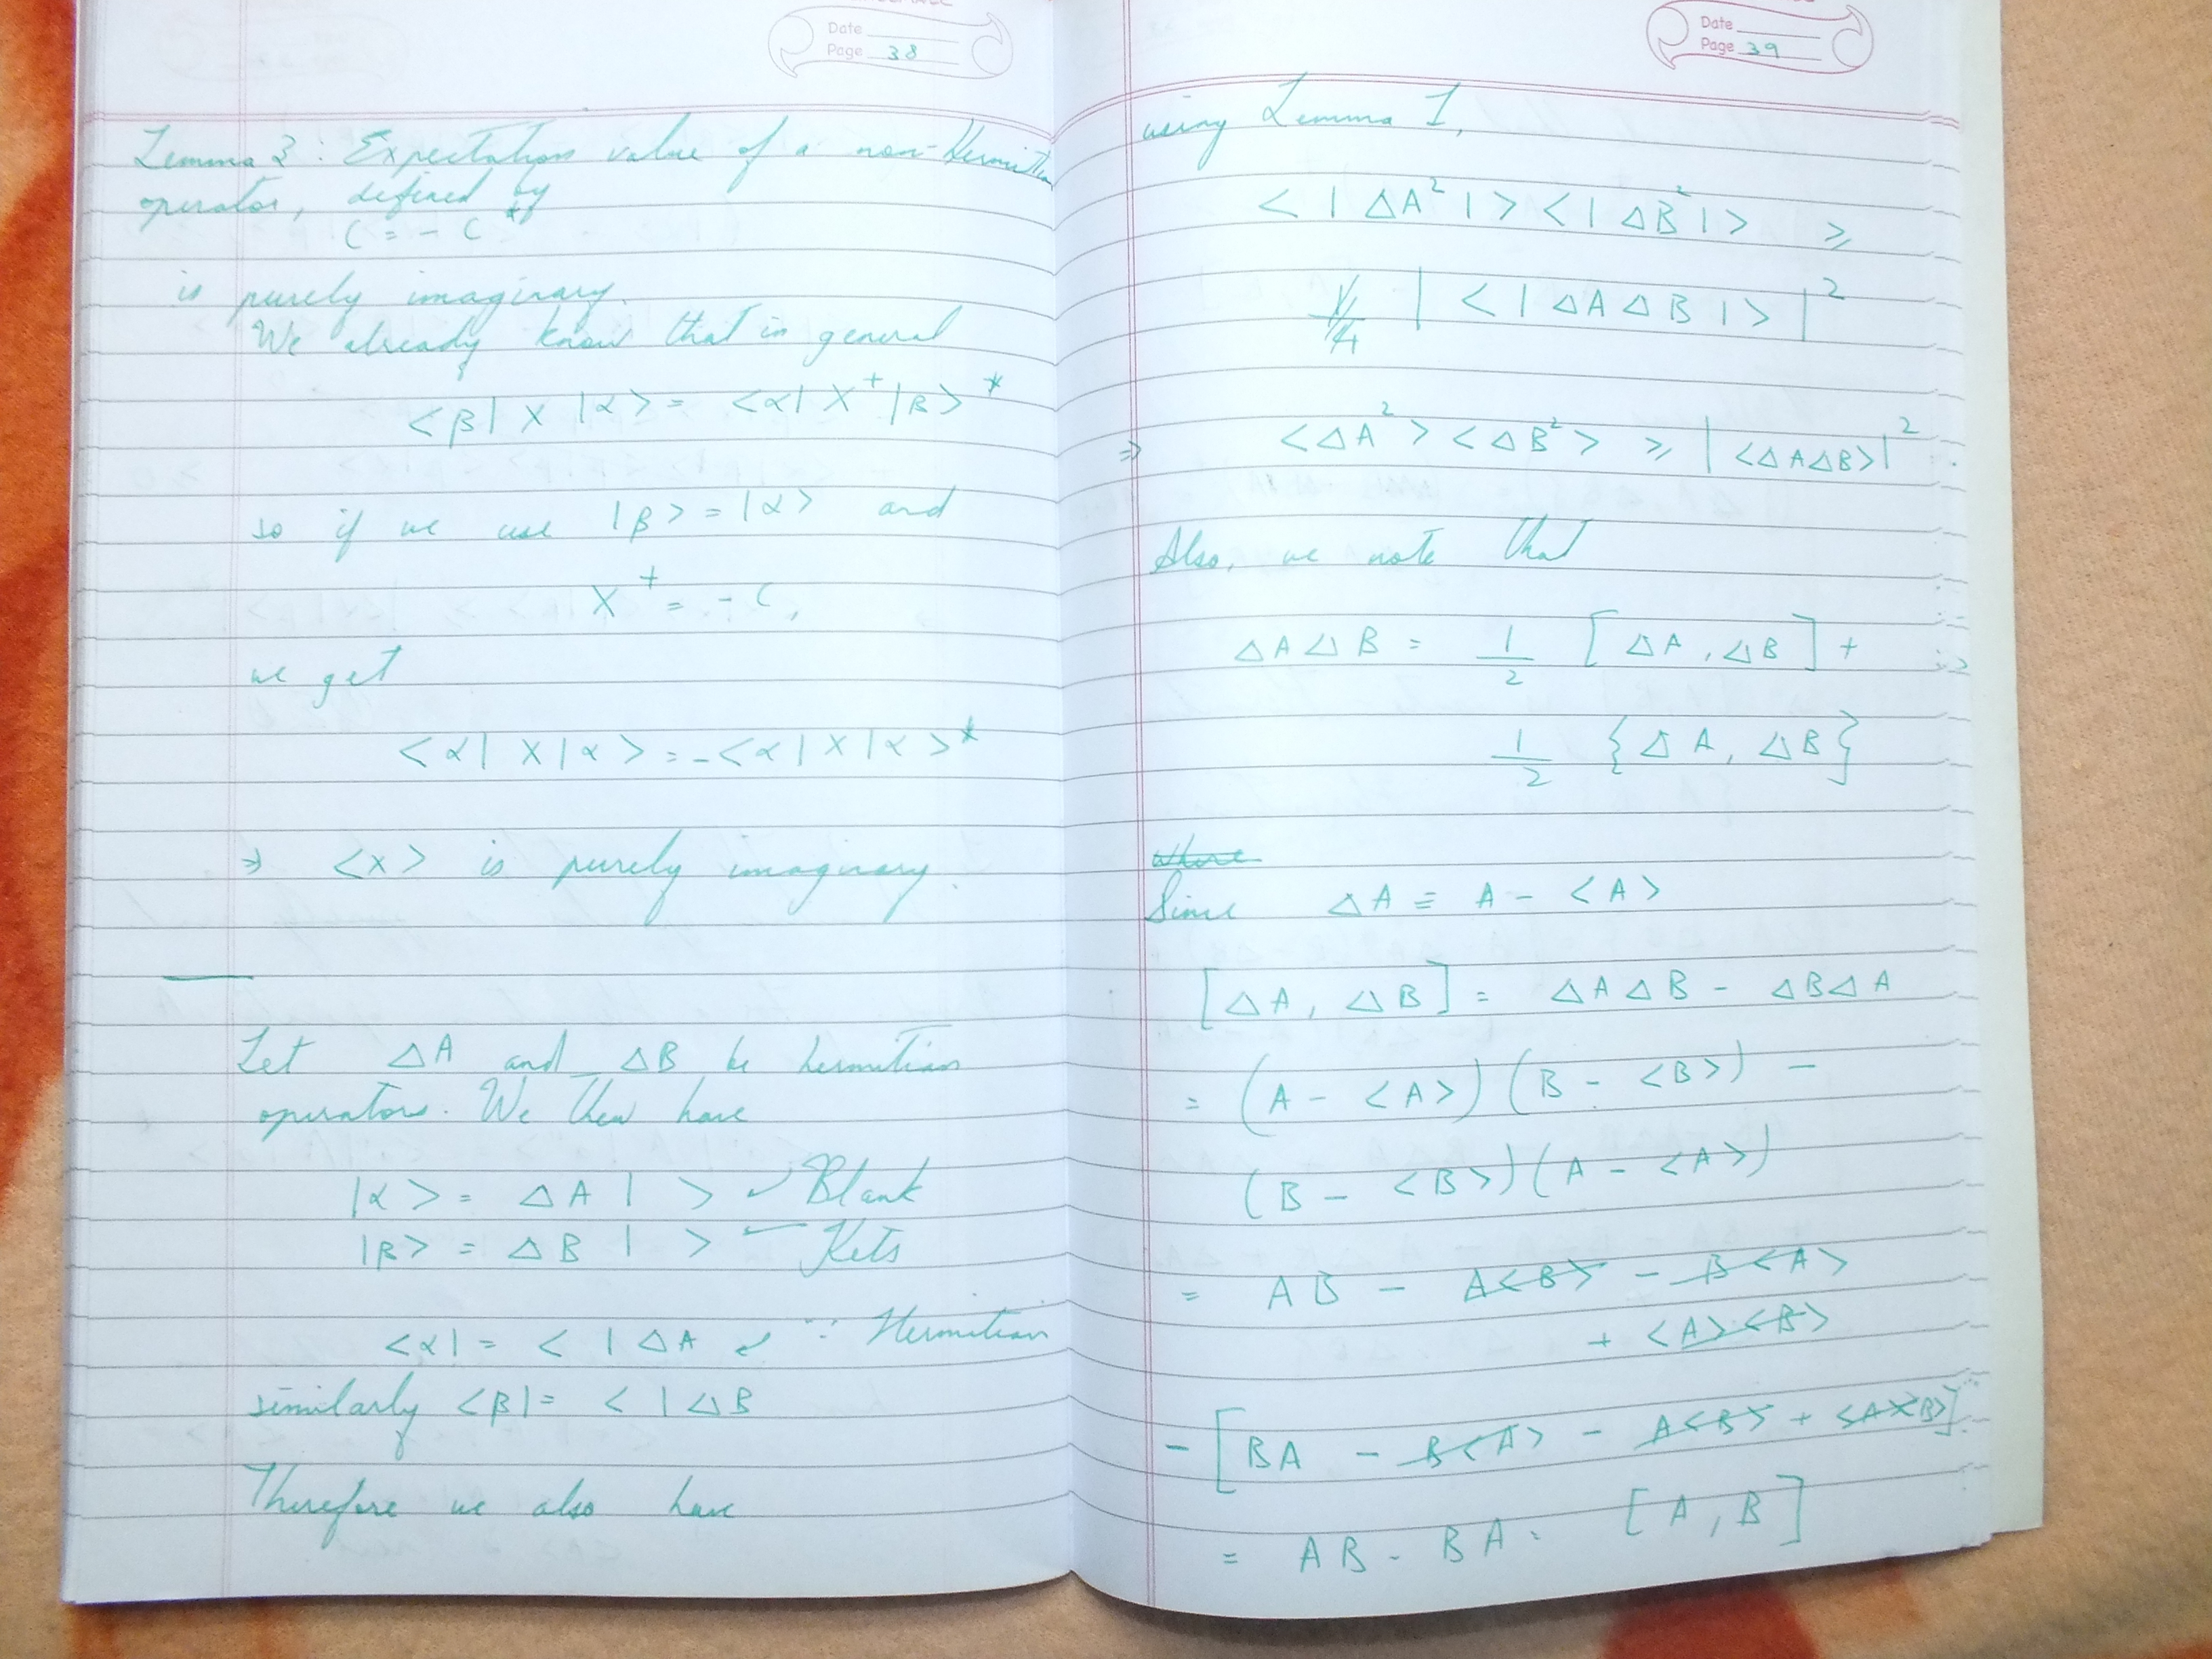 Date
Page 38
Lemma 3: Expectation value of a non-Hermitian
operator, defined by
C = - C*
is purely imaginary.
We already know that in general
<β| X |α> = <α| X⁺ |β>*
so if we use |β> = |α> and
X⁺ = - C,
we get
<α| X |α> = - <α| X |α>*
⇒ <x> is purely imaginary.
Let ΔA and ΔB be hermitian
operators. We then have
|α> = ΔA | > ↙ Blank
|β> = ΔB | > ← Kets
<α| = < | ΔA ↙ ∵ Hermitian
similarly <β| = < | ΔB
Therefore we also have
Date
Page 39
using Lemma 1,
< | ΔA² | > < | ΔB² | > ≥
| < | ΔA ΔB | > |²
⇒ <ΔA²> <ΔB²> ≥ | <ΔAΔB> |²
Also, we note that
ΔAΔB = 1/2 [ΔA, ΔB] +
1/2 {ΔA, ΔB}
where
Since ΔA ≡ A - <A>
[ΔA, ΔB] = ΔAΔB - ΔBΔA
= (A - <A>) (B - <B>) -
(B - <B>) (A - <A>)
= AB - A<B> - B<A>
+ <A><B>
- [BA - B<A> - A<B> + <A><B>]
= AB - BA = [A, B]